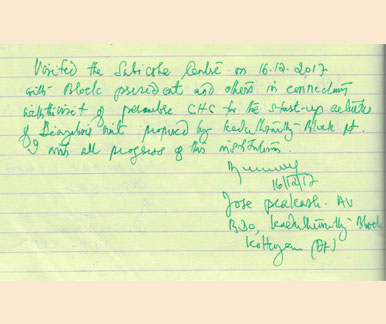 Visited the Centre on 16.12.2017
with Block president and others in connection
with the visit of CHC for the start-up
of unit proposed by Kaduthuruthy Block pt.
I wish all progress of this institution.
16/12/17
Jose prakash. AV
BDO, Kaduthuruthy Block
Kottayam (Dt)